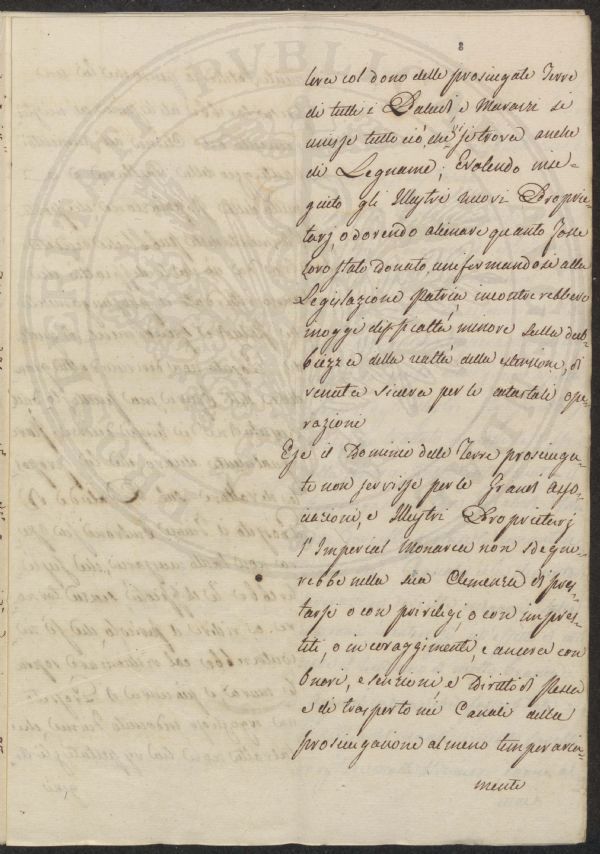 8
lera col dono delle prosciugate Terre
di tutte i Paludi, e Marazzi si
unisse tutto ciò, che si trova anche
di Legname; E volendo inse-
guito gli Illustri nuovi Proprie-
tarj, o dovendo alienare quanto fosse
loro stato donato, uniformandosi alla
Legislazione Patria, incontrerebbero
moggi difficoltà minore sulla dub-
biezza della realtà della estensione, di
venuta sicura per le catastali ope-
razioni
E se il Dominio delle Terre prosciuga-
te non servisse per le Grandi Asso-
ciazioni, e Illustri Proprietarj
l'Imperial Monarca non sdegne-
rebbe nella sua Clemenza di pres-
tarsi o con privilegi, o con impres-
titi, o incoraggimenti, e ancora con
Onori, esenzioni, e Diritto di Pesca
e di trasporto nei Canali della
prosciugazione almeno temporaria-
mente
PVBLIC